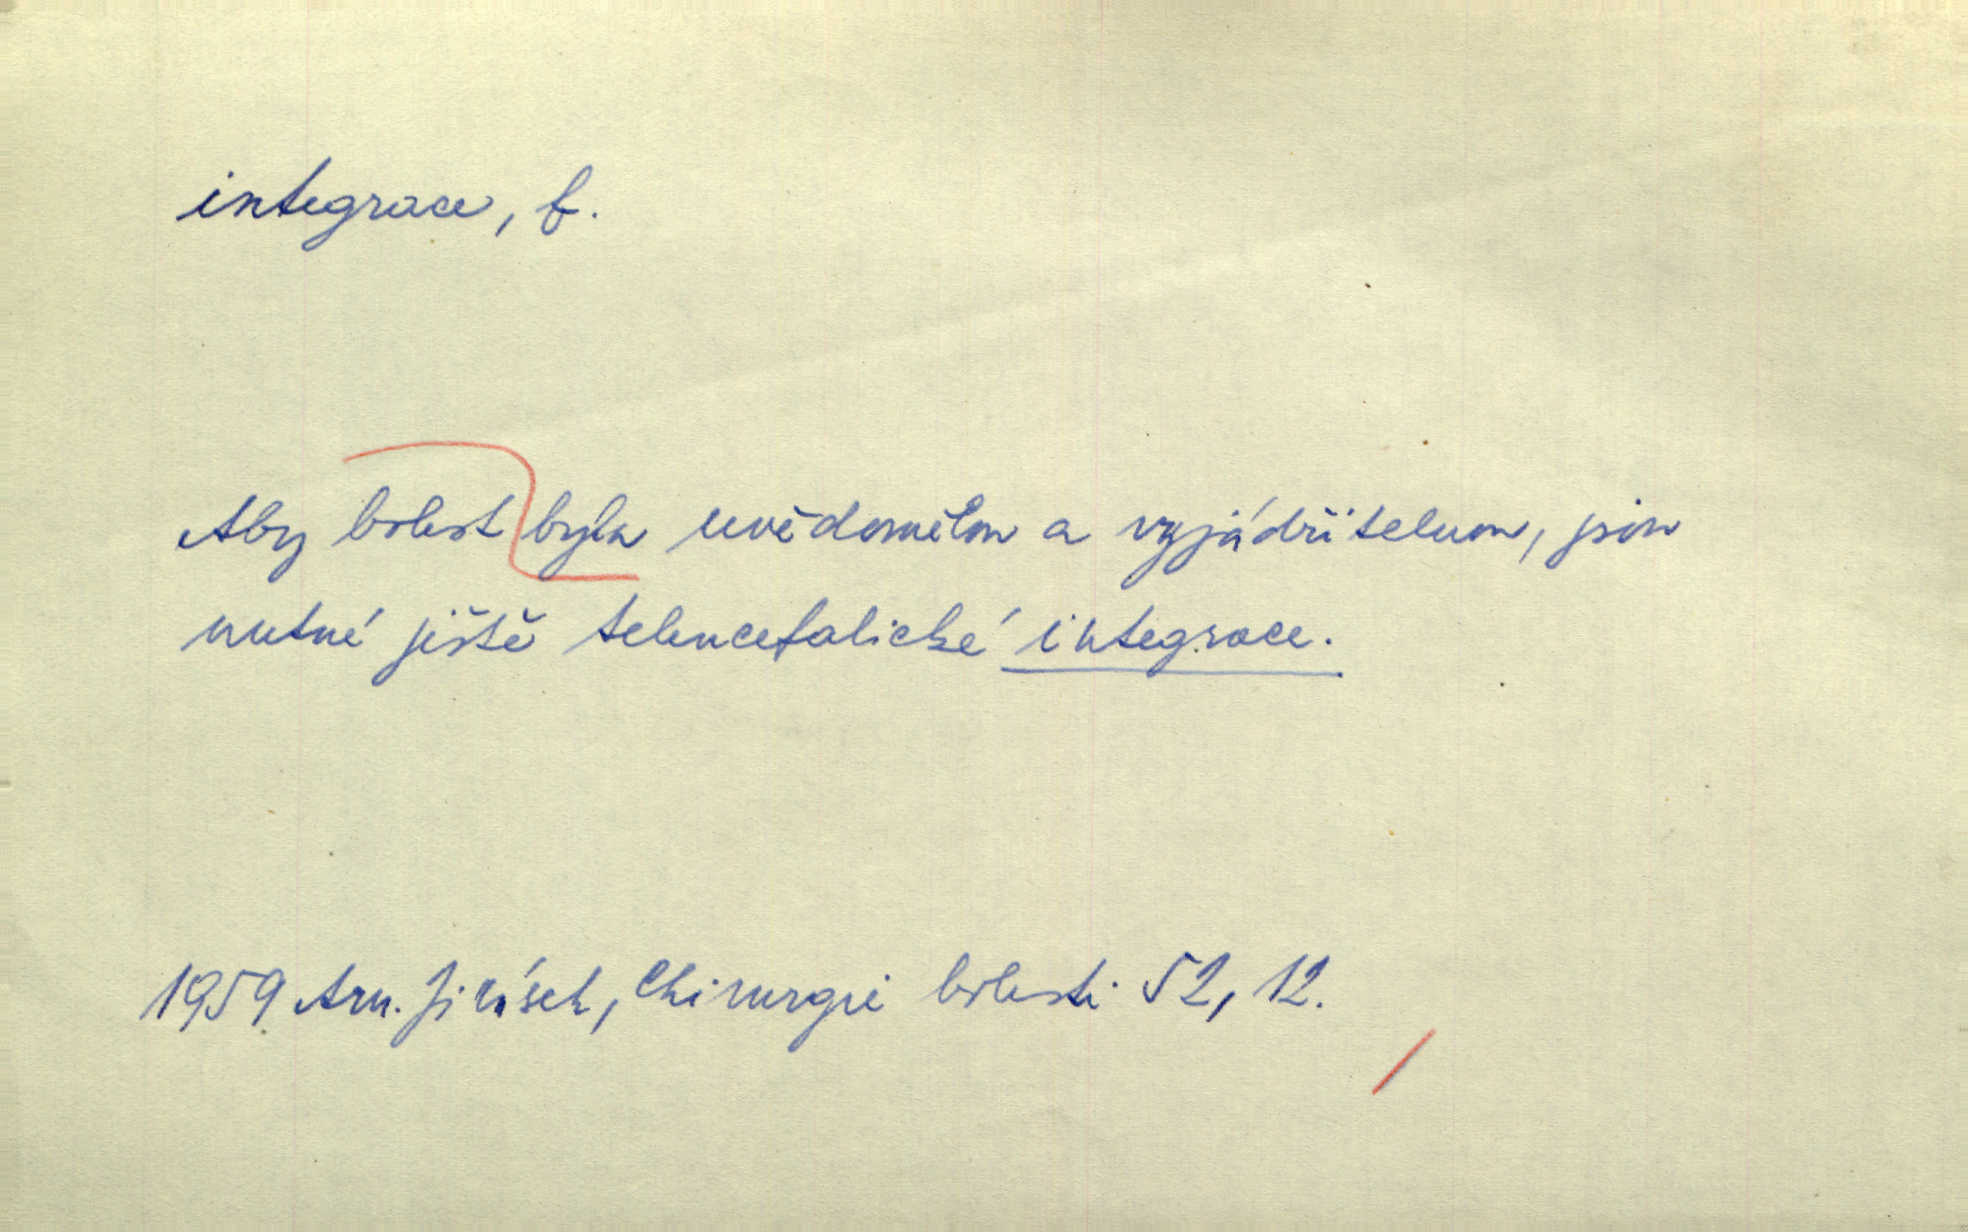 integrace, f.
Aby bolest byla uvědomělou a vyjádřitelnou, jsou
nutné ještě telencefalické integrace.
1959 Arn. Jirásek, Chirurgie bolesti 52, 12.